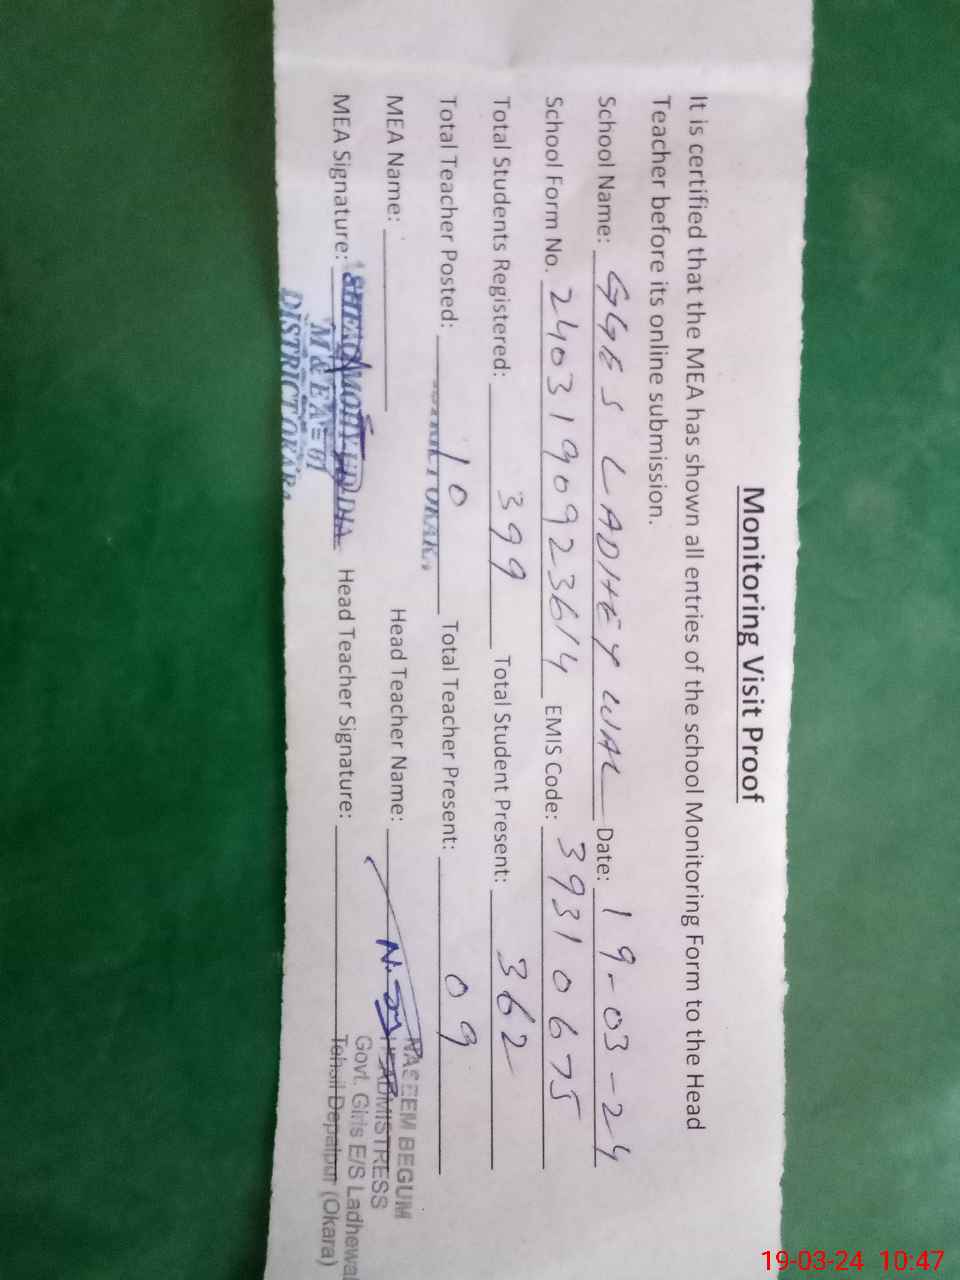 Monitoring Visit Proof
It is certified that the MEA has shown all entries of the school Monitoring Form to the Head
Teacher before its online submission.
School Name: GGES LADHEYWAL Date: 19-03-24
School Form No. 2403190923614 EMIS Code: 39310675
Total Students Registered: 399 Total Student Present: 362
Total Teacher Posted: 10 Total Teacher Present: 09
MEA Name: Head Teacher Name:
MEA Signature: Head Teacher Signature:
M & EA = 01
DISTRICT OKARA
NASEEM BEGUM
HEADMISTRESS
Govt. Girls E/S Ladhewal
Tehsil Depalpur (Okara)
19-03-24 10:47